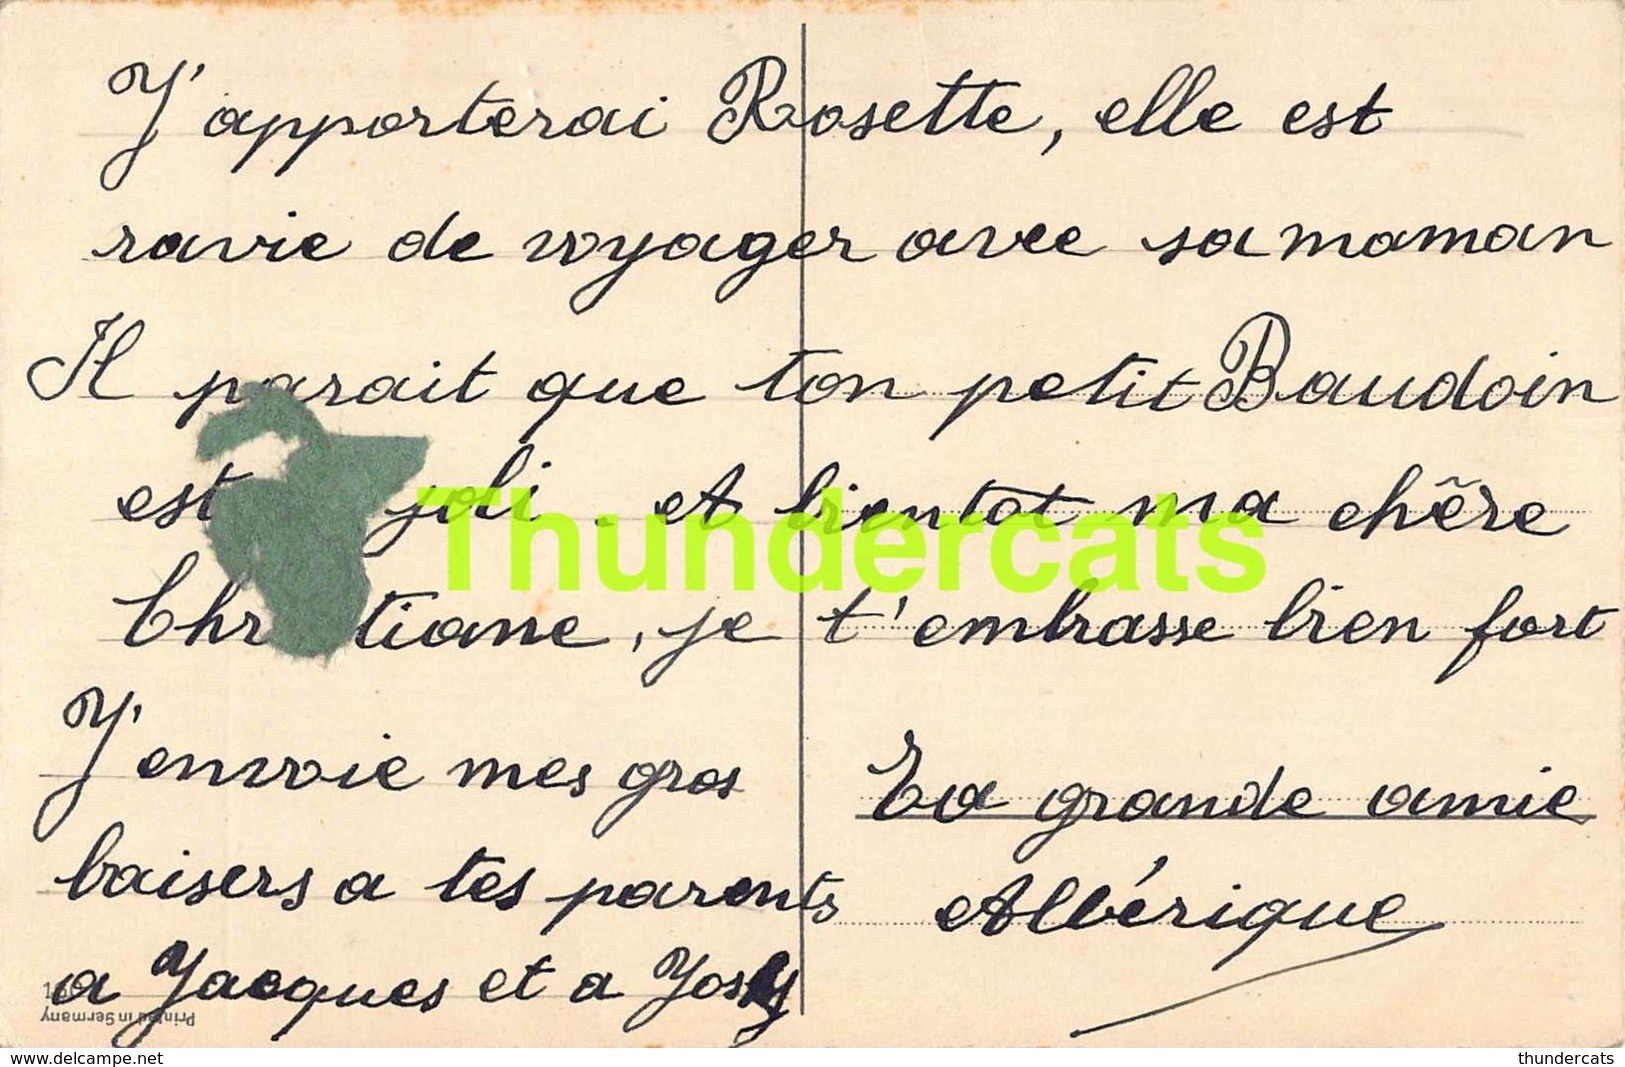 J'apporterai Rosette, elle est
ravie de voyager avec sa maman
Il parait que ton petit Baudoin
est joli. A bientot ma chêre
Chr tiane, je t'embrasse bien fort
J'envoie mes gros
baisers a tes parents
a Jacques et a Josy
Ta grande amie
Albérique
Printed in Germany
Thundercats
delcampe.net
thundercats